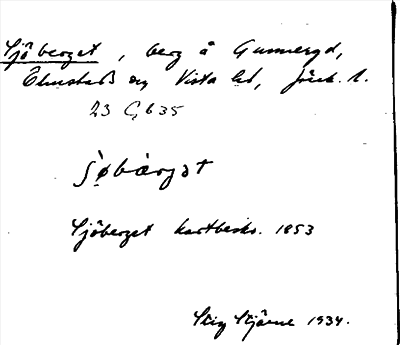 Sjöberget, berg å Gunneryd,
Ölmstads sn Vista hd, Jönk. l.
23 G 635
Sjöberget kartbeskr. 1853
Stig Stjärne 1934.